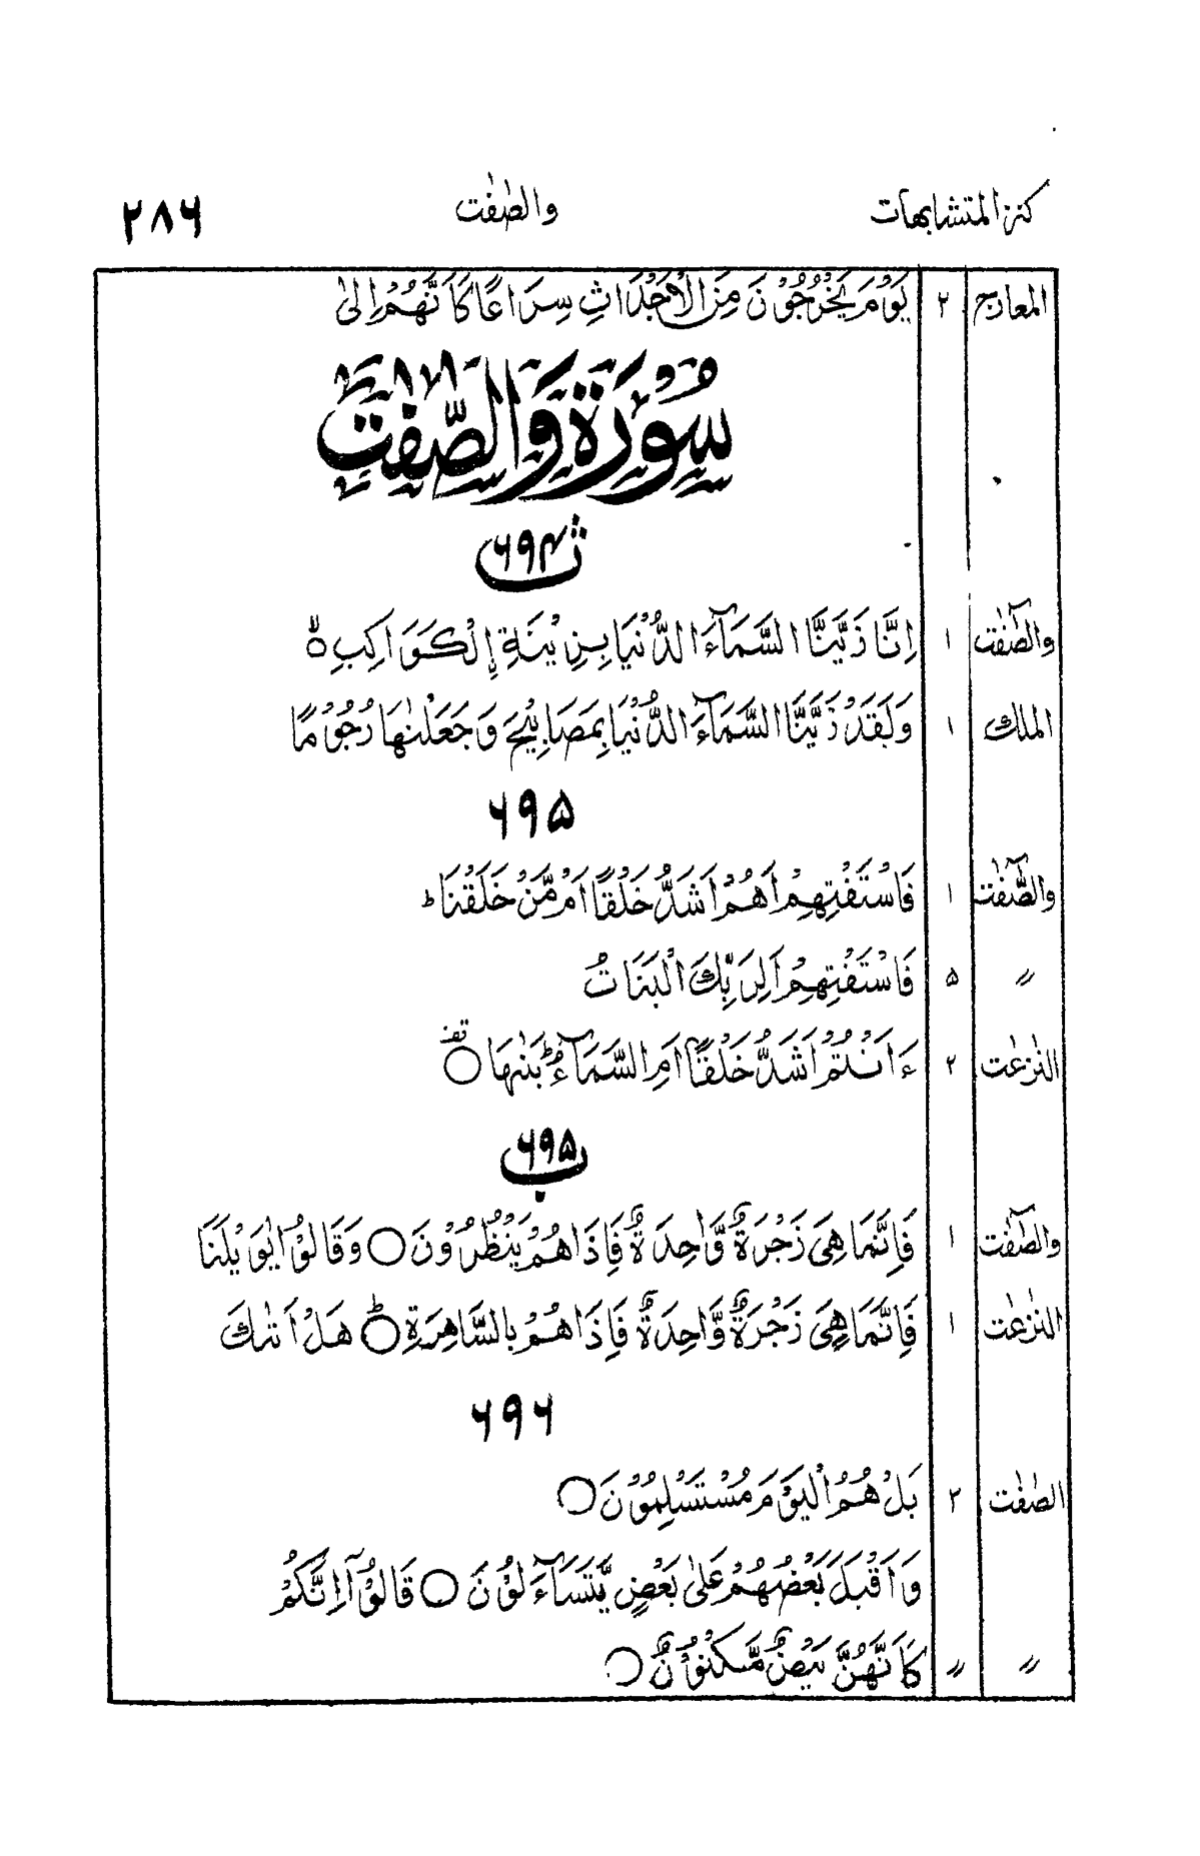 كنز المتشابهات والصّٰفّٰت ۲۸۶
المعارج ۲ يَوْمَ يَخْرُجُوْنَ مِنَ الْاَجْدَاثِ سِرَاعًا كَاَنَّهُمْ اِلٰى
سُوْرَةُ وَالصّٰفّٰتِ
۶۹۴ ث
والصّٰفّٰت ۱ اِنَّا زَيَّنَّا السَّمَآءَ الدُّنْيَا بِزِيْنَةِ ࣙالْكَوَاكِبِ ۙ
الملك ۱ وَلَقَدْ زَيَّنَّا السَّمَآءَ الدُّنْيَا بِمَصَابِيْحَ وَجَعَلْنٰهَا رُجُوْمًا
۶۹۵
والصّٰفّٰت ۱ فَاسْتَفْتِهِمْ اَهُمْ اَشَدُّ خَلْقًا اَمْ مَّنْ خَلَقْنَا ؕ
〃 ۵ فَاسْتَفْتِهِمْ اَلِرَبِّكَ الْبَنَاتُ
النّٰزعٰت ۲ ءَاَنْتُمْ اَشَدُّ خَلْقًا اَمِ السَّمَآءُ ؕ بَنٰهَا ○ تفـ
۶۹۵ ب
والصّٰفّٰت ۱ فَاِنَّمَا هِيَ زَجْرَةٌ وَّاحِدَةٌ فَاِذَا هُمْ يَنْظُرُوْنَ ○ وَقَالُوْا يٰوَيْلَنَا
النّٰزعٰت ۱ فَاِنَّمَا هِيَ زَجْرَةٌ وَّاحِدَةٌ فَاِذَا هُمْ بِالسَّاهِرَةِ ○ؕ هَلْ اَتٰىكَ
۶۹۶
الصّٰفّٰت ۲ بَلْ هُمُ الْيَوْمَ مُسْتَسْلِمُوْنَ ○
وَاَقْبَلَ بَعْضُهُمْ عَلٰى بَعْضٍ يَّتَسَآءَلُوْنَ ○ قَالُوْٓا اِنَّكُمْ
〃 〃 كَاَنَّهُنَّ بَيْضٌ مَّكْنُوْنٌ ○